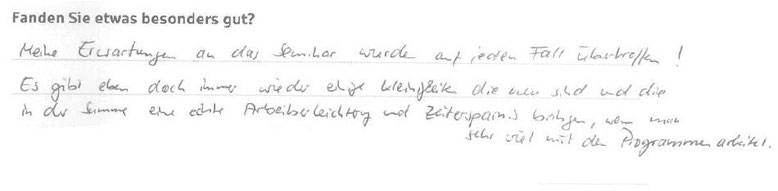 Fanden Sie etwas besonders gut?
Meine Erwartungen an das Seminar wurde auf jeden Fall übertroffen !
Es gibt eben doch immer wieder einige Kleinigkeiten die neu sind und die
in der Summe eine echte Arbeitserleichterung und Zeitersparnis bringen, wenn man
sehr viel mit den Programmen arbeitet.